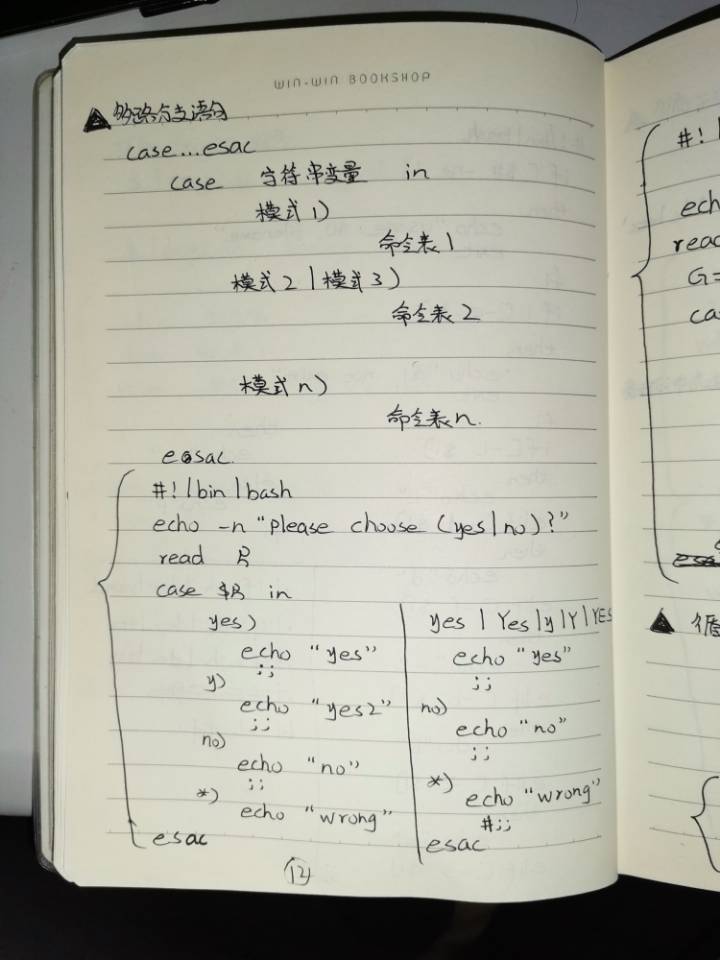 WIN-WIN BOOKSHOP
▲ 多路分支语句
case...esac
case 字符串变量 in
模式1)
命令表1
模式2|模式3)
命令表2
模式n)
命令表n.
esac.
#!/bin/bash
echo -n "please choose (yes|no)?"
read R
case $R in
yes)
echo "yes"
;;
y)
echo "yes2"
;;
no)
echo "no"
;;
*)
echo "wrong"
esac
yes | Yes | y | Y | YES
echo "yes"
;;
no)
echo "no"
;;
*)
echo "wrong"
#;;
esac
12
#!
echo
read
G=
cas
▲ 循